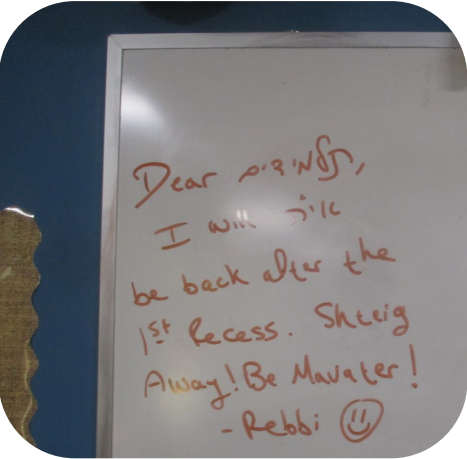 Dear תלמידים,
I will אי"ה
be back after the
1st Recess. Shteig
Away! Be Mavater!
-Rebbi ☺